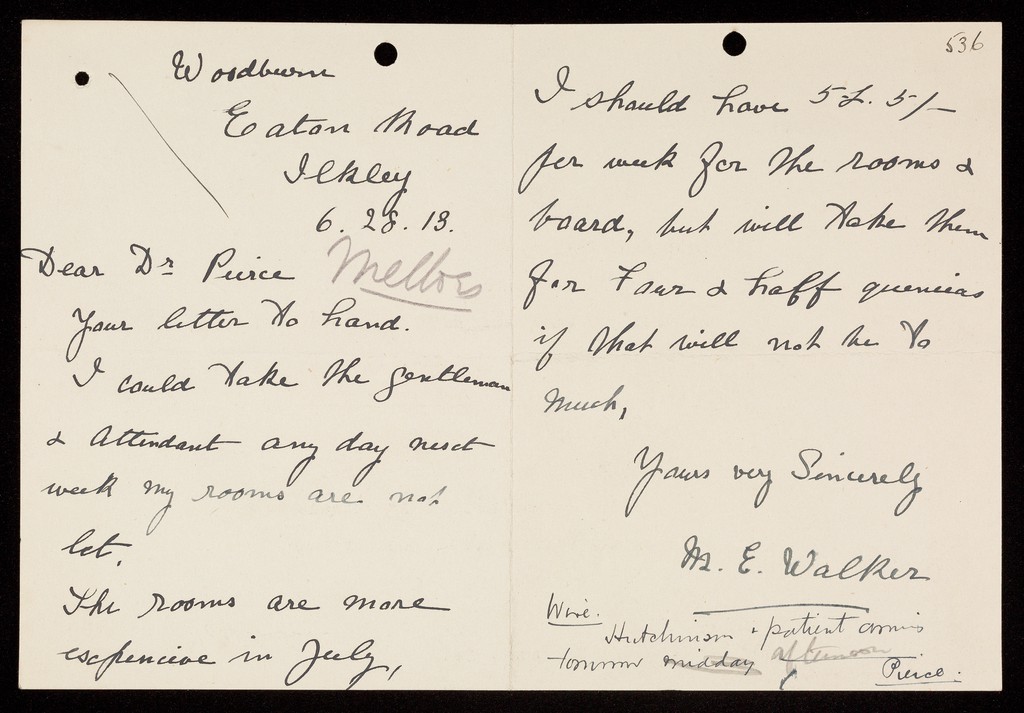 Woodburn
Eaton Road
Ilkley
6. 28. 13.
Dear Dr Pierce
Mellors
Your letter to hand.
I could take the gentleman
& Attendant any day next
week my rooms are not
let.
The rooms are more
expencive in July,
536
I should have 5£. 5/-
per week for the rooms &
board, but will take them
for Four & haff quenieas
if that will not be to
much,
Yours very Sincerely
M. E. Walker
Wire.
Hutchinson & patient arrives
tomorrow midday afternoon
Pierce.